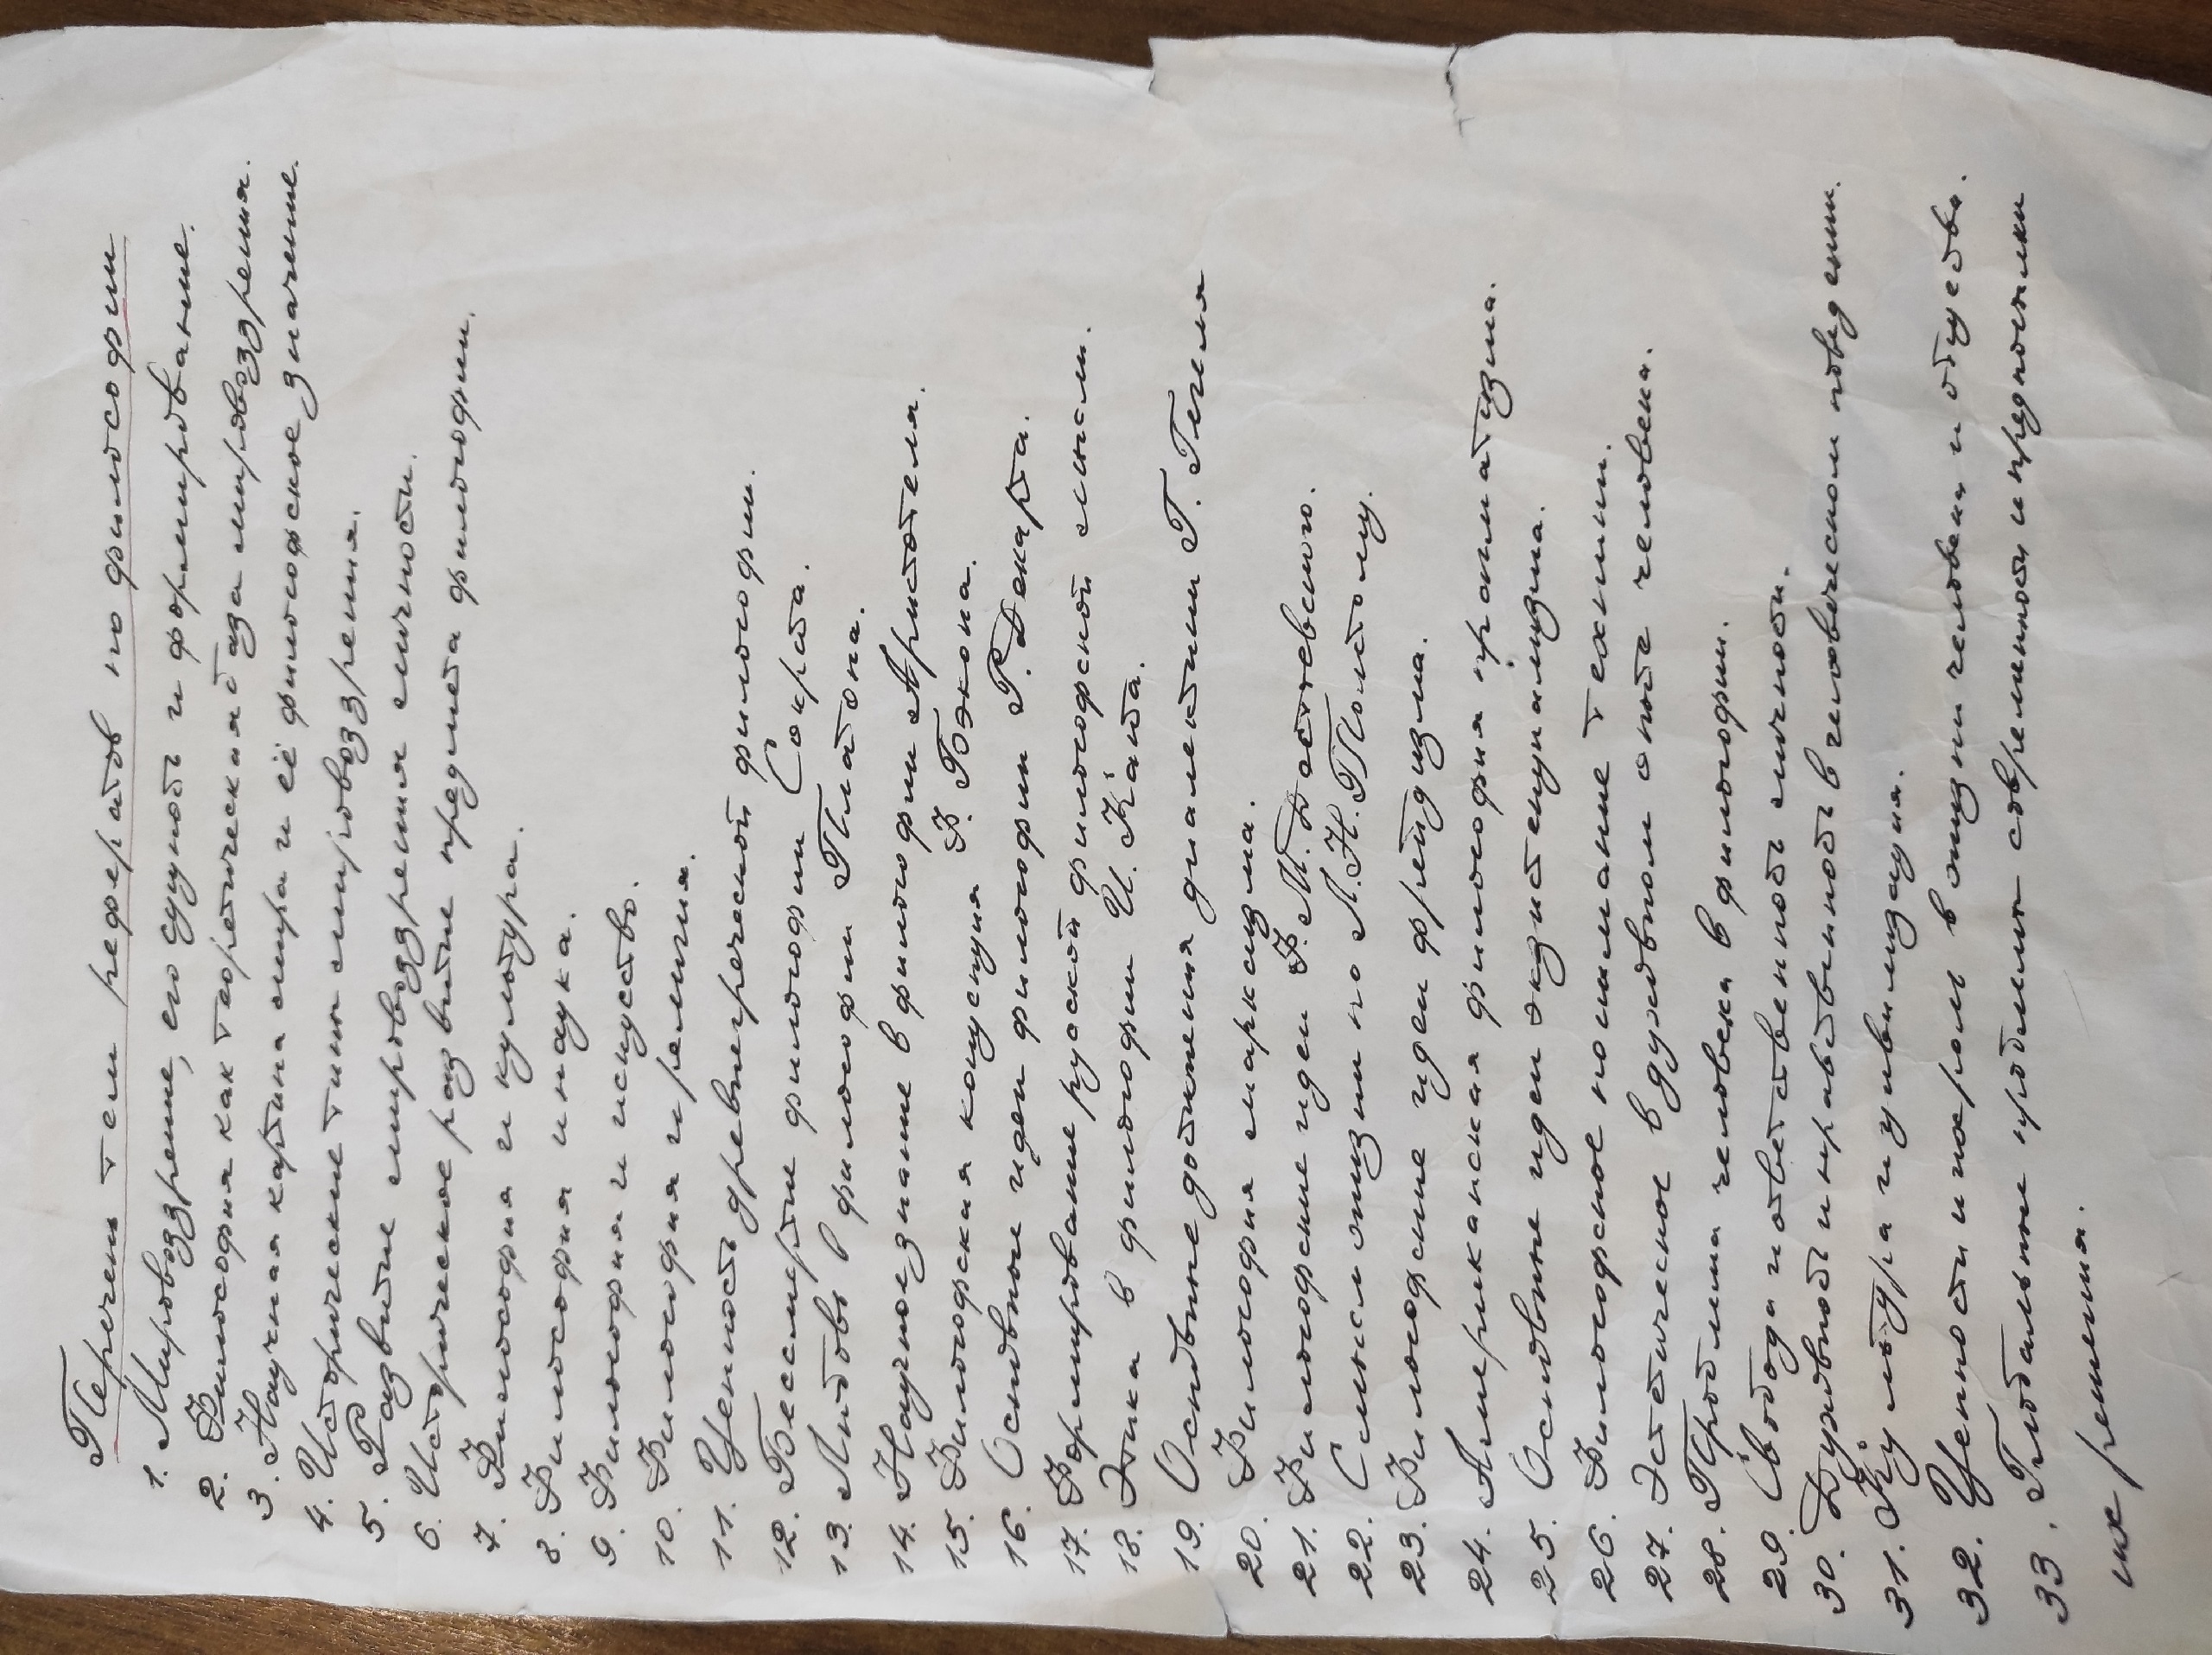 Перечень тем рефератов по философии
1. Мировоззрение, его сущность и формирование.
2. Философия как теоретическая база мировоззрения.
3. Научная картина мира и её философское значение.
4. Исторические типы мировоззрения.
5. Развитие мировоззрения личности.
6. Историческое развитие предмета философии.
7. Философия и культура.
8. Философия и наука.
9. Философия и искусство.
10. Философия и религия.
11. Ценность древнегреческой философии.
12. Бессмертие философии Сократа.
13. Любовь в философии Платона.
14. Научное знание в философии Аристотеля.
15. Философская концепция Ф. Бэкона.
16. Основные идеи философии Р. Декарта.
17. Формирование русской философской мысли.
18. Этика в философии И. Канта.
19. Основные достижения диалектики Г. Гегеля
20. Философия марксизма.
21. Философские идеи Ф. М. Достоевского.
22. Смысл жизни по Л.Н. Толстому.
23. Философские идеи фрейдизма.
24. Американская философия прагматизма.
25. Основные идеи экзистенциализма.
26. Философское понимание техники.
27. Эстетическое в духовном опыте человека.
28. Проблема человека в философии.
29. Свобода и ответственность личности.
30. Духовность и нравственность в человеческом поведении.
31. Культура и цивилизация.
32. Ценности и их роль в жизни человека и общества.
33. Глобальные проблемы современности и предпосылки
их решения.